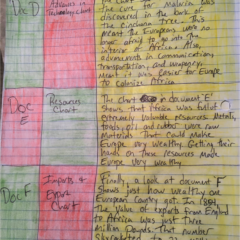 Doc D
Advances in
Technology Chart
The Chart
the cure for malaria was
discovered in the bark of
the cinchona tree. This
meant the Europeans were no
longer afraid to go into the
interior of Africa. Also
advancements in Communication,
transportation, and weaponry
meant it was easier for Europe
to Colonize Africa
Doc
E
Resources
Chart
The chart in document "E"
shows that Africa was full of
extremely valuable resources. Metals,
foods, oil and rubber were raw
Materials that could make
Europe very wealthy. Getting their
hands on these resources made
Europe very wealthy
Doc F
Imports &
Export
Chart
Finally, a look at document "F"
shows just how wealthy one
European Country got. In
The value of exports from England
to Africa was just three
million Pounds. That number
skyrocketed to